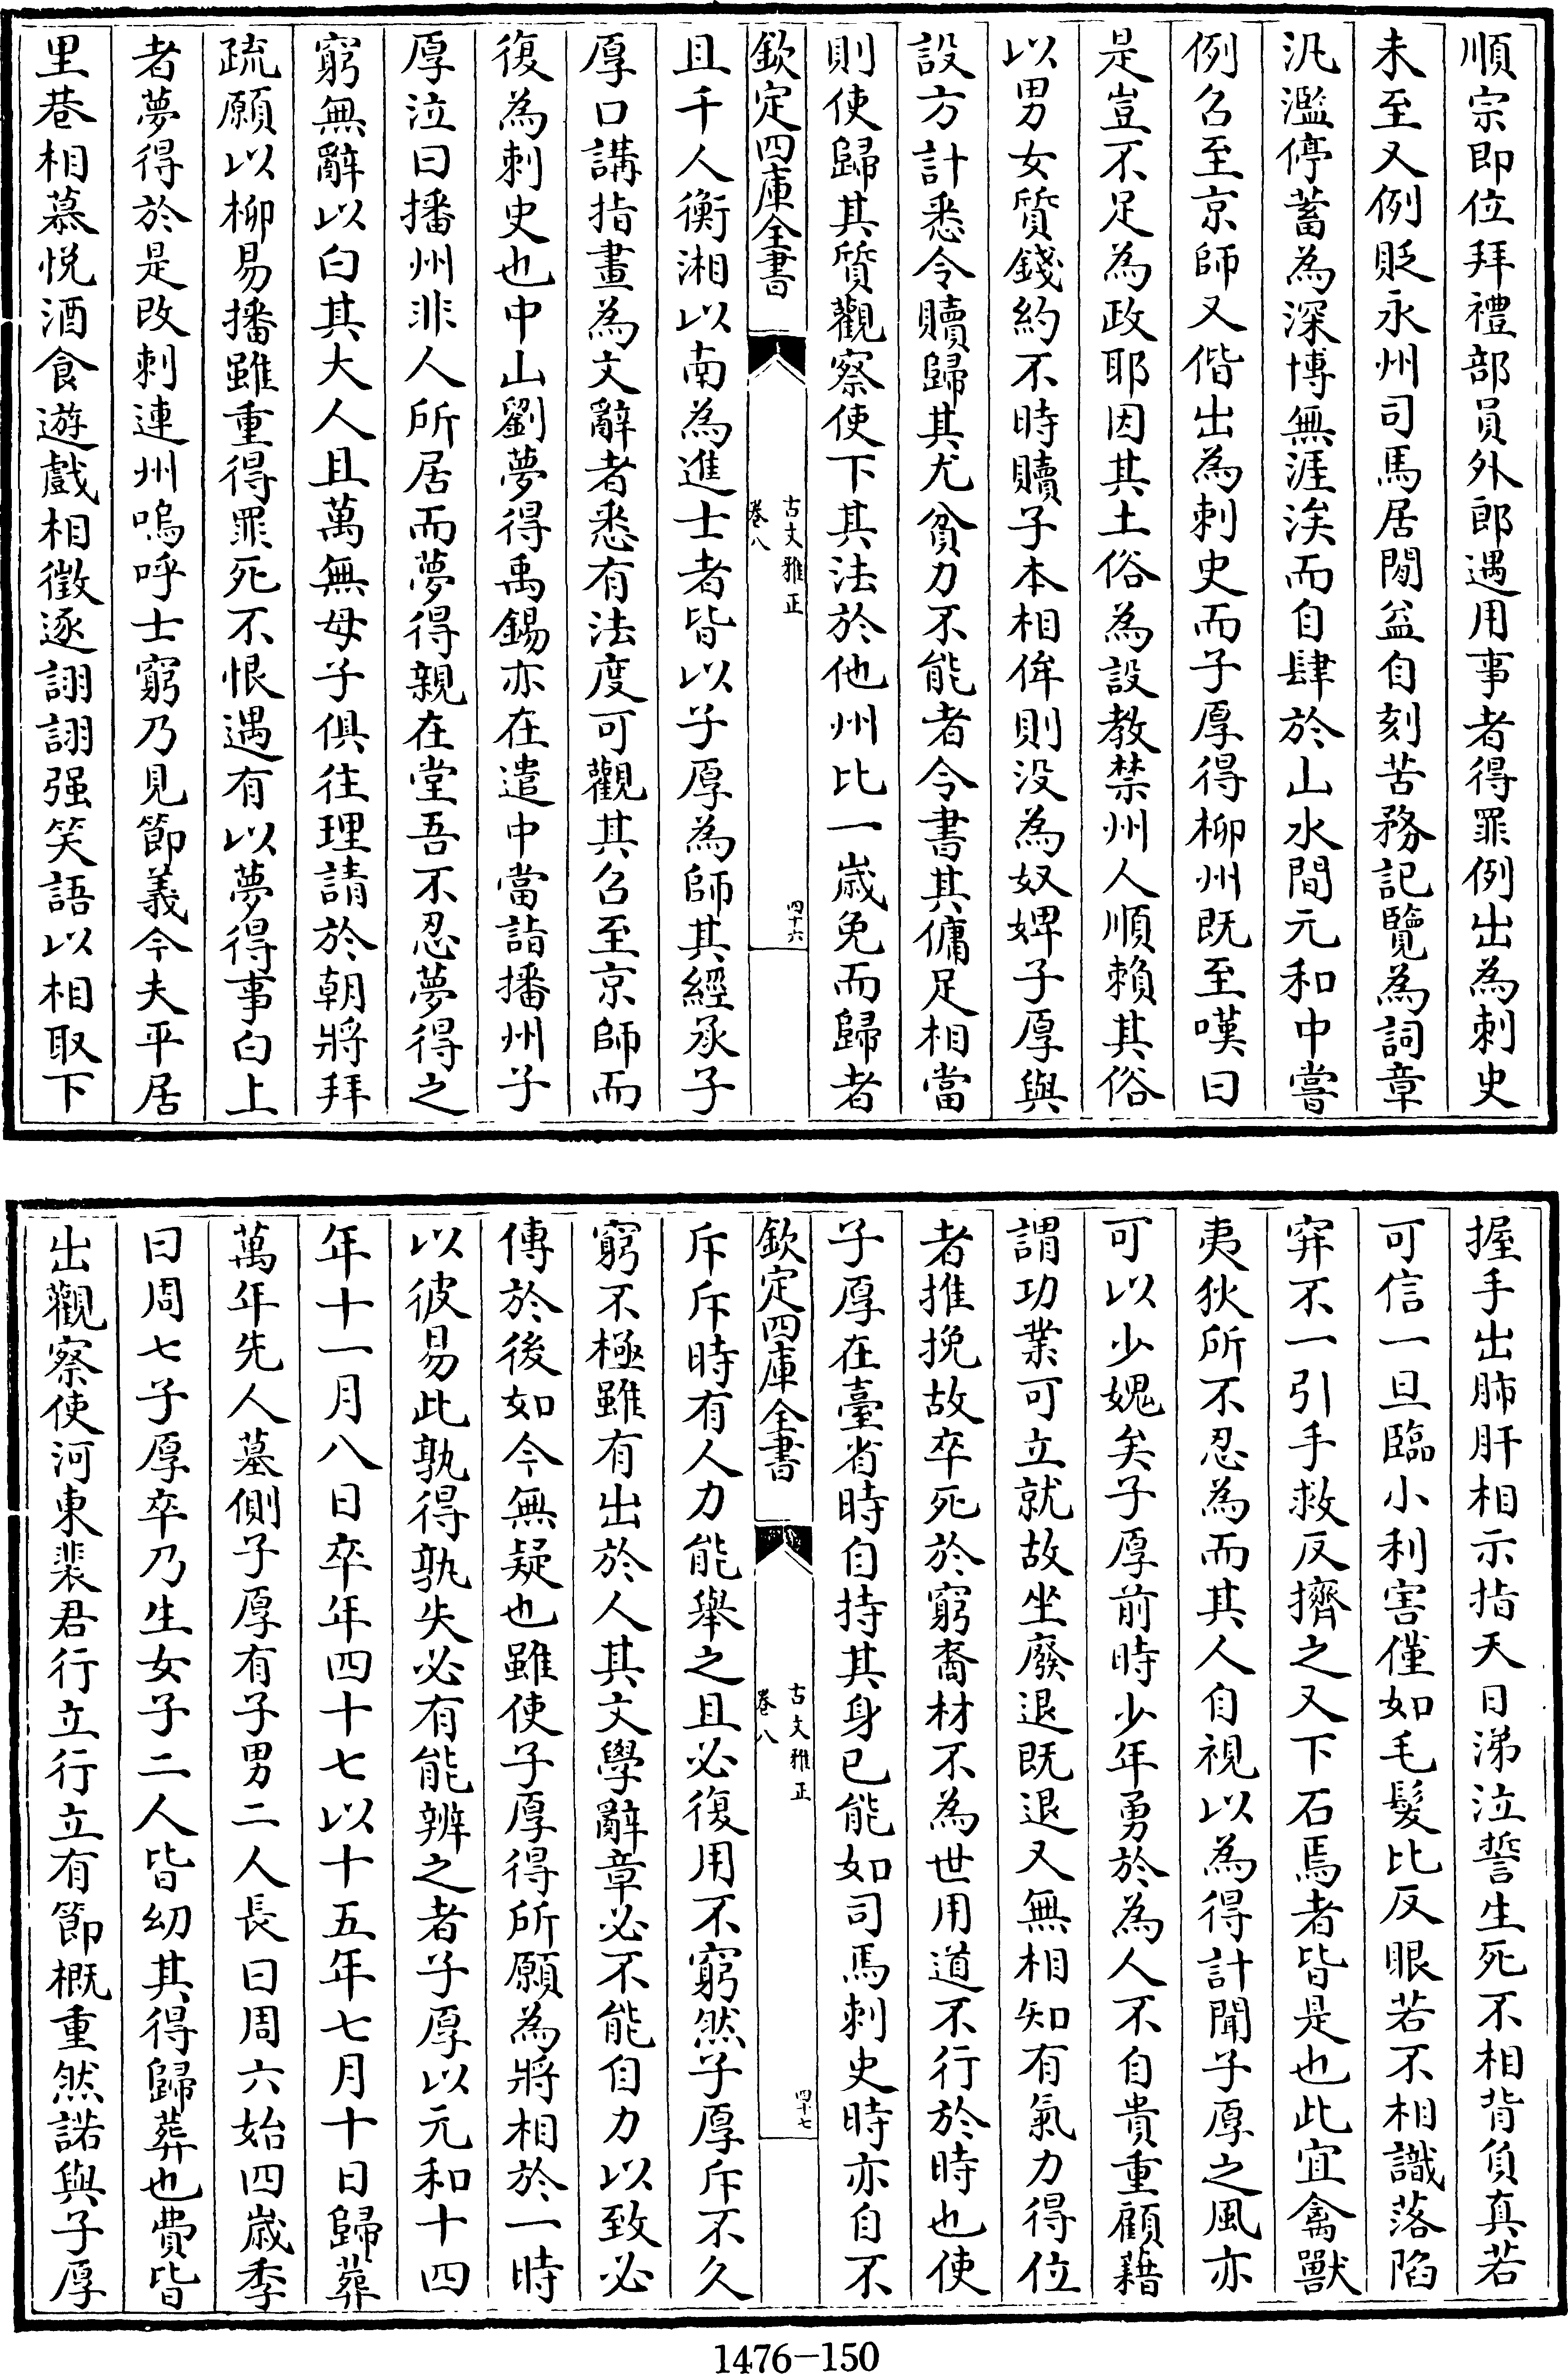 順宗即位拜禮部員外郎遇用事者得罪例出為刺史
未至又例貶永州司馬居閒益自刻苦務記覽為詞章
汎濫停蓄為深博無涯涘而自肆於山水間元和中嘗
例召至京師又偕出為刺史而子厚得柳州既至嘆曰
是豈不足為政耶因其土俗為設教禁州人順賴其俗
以男女質錢約不時贖子本相侔則没為奴婢子厚與
設方計悉令贖歸其尤貧力不能者令書其傭足相當
則使歸其質觀察使下其法於他州比一歲免而歸者
欽定四庫全書
古文雅正
卷八
四十六
且千人衡湘以南為進士者皆以子厚為師其經承子
厚口講指畫為文辭者悉有法度可觀其召至京師而
復為刺史也中山劉夢得禹錫亦在遣中當詣播州子
厚泣曰播州非人所居而夢得親在堂吾不忍夢得之
窮無辭以白其大人且萬無母子俱往理請於朝將拜
疏願以柳易播雖重得罪死不恨遇有以夢得事白上
者夢得於是改刺連州嗚呼士窮乃見節義今夫平居
里巷相慕悦酒食遊戲相徵逐詡詡强笑語以相取下
握手出肺肝相示指天日涕泣誓生死不相背負真若
可信一旦臨小利害僅如毛髮比反眼若不相識落陷
穽不一引手救反擠之又下石焉者皆是也此宜禽獸
夷狄所不忍為而其人自視以為得計聞子厚之風亦
可以少媿矣子厚前時少年勇於為人不自貴重顧藉
謂功業可立就故坐廢退既退又無相知有氣力得位
者推挽故卒死於窮裔材不為世用道不行於時也使
子厚在臺省時自持其身已能如司馬刺史時亦自不
欽定四庫全書
古文雅正
卷八
四十七
斥斥時有人力能舉之且必復用不窮然子厚斥不久
窮不極雖有出於人其文學辭章必不能自力以致必
傳於後如今無疑也雖使子厚得所願為將相於一時
以彼易此孰得孰失必有能辨之者子厚以元和十四
年十一月八日卒年四十七以十五年七月十日歸葬
萬年先人墓側子厚有子男二人長曰周六始四歲季
曰周七子厚卒乃生女子二人皆幼其得歸葬也費皆
出觀察使河東裴君行立行立有節概重然諾與子厚
1476-150